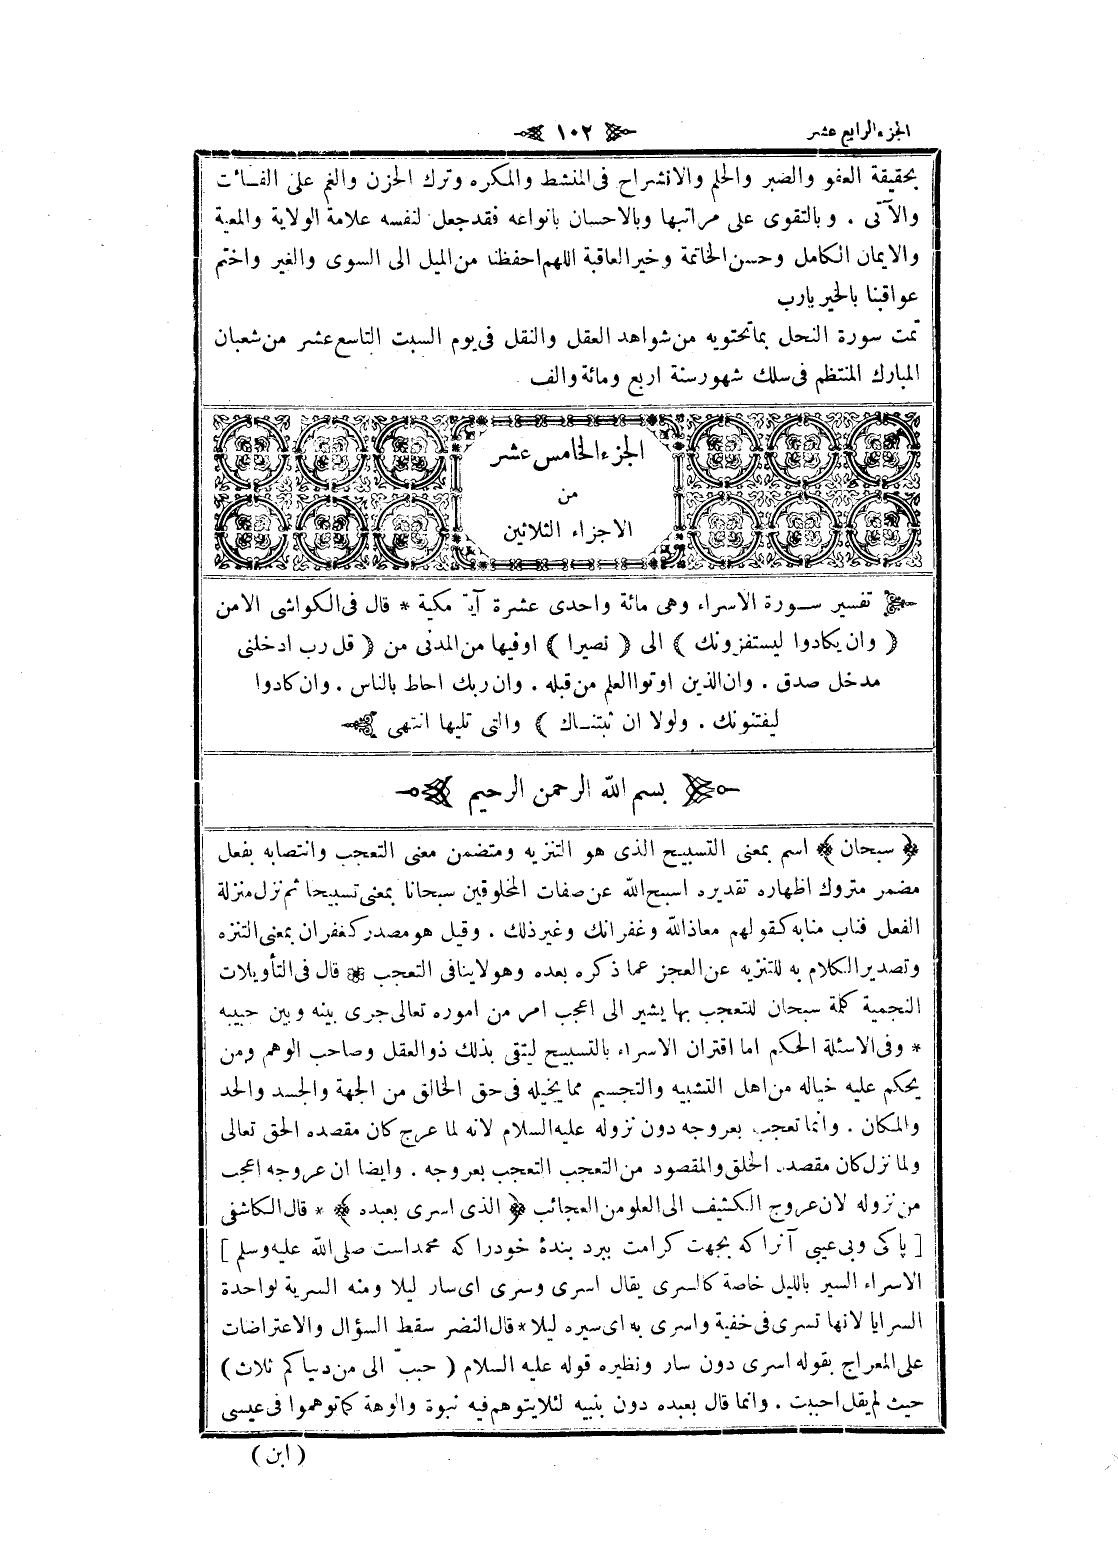 الجزء الرابع عشر
١٠٢
بحقيقة العفو والصبر والحلم والانشراح فى المنشط والمكره وترك الحزن والغم على الفـائت
والآتى . وبالتقوى على مراتبها وبالاحسان بانواعه فقد جعل لنفسه علامة الولاية والمعية
والايمان الكامل وحسن الخاتمة وخير العاقبة اللهم احفظنا من الميل الى السوى والغير واختم
عواقبنا بالخير يارب
تمت سورة النحل بما تحتويه من شواهد العقل والنقل فى يوم السبت التاسع عشر من شعبان
المبارك المنتظم فى سلك شهور سنة اربع ومائة والف
الجزء الخامس عشر
من
الاجزاء الثلاثين
تفسير سـورة الاسراء وهى مائة واحدى عشرة آية مكية * قال فى الكواشى الا من
( وان يكادوا ليستفزونك ) الى ( نصيرا ) اوفيها من المدنى من ( قل رب ادخلنى
مدخل صدق . وان الذين اوتوا العلم من قبله . وان ربك احاط بالناس . وان كادوا
ليفتنونك . ولولا ان ثبتنـاك ) والتى تليها انتهى
بسم الله الرحمن الرحيم
﴿ سبحان ﴾ اسم بمعنى التسبيح الذى هو التنزيه ومتضمن معنى التعجب وانتصابه بفعل
مضمر متروك اظهاره تقديره اسبح الله عن صفات المخلوقين سبحانا بمعنى تسبيحا ثم نزل منزلة
الفعل فناب منابه كقولهم معاذ الله وغفرانك وغير ذلك . وقيل هو مصدر كغفران بمعنى التنزه
وتصدير الكلام به للتنزيه عن العجز عما ذكره بعده وهو لاينافى التعجب * قال فى التأويلات
النجمية كلمة سبحان للتعجب بها يشير الى اعجب امر من اموره تعالى جرى بينه وبين حبيبه
* وفى الاسئلة الحكم اما اقتران الاسراء بالتسبيح ليتقى بذلك ذو العقل وصاحب الوهم ومن
يحكم عليه خياله من اهل التشبيه والتجسيم مما يخيله فى حق الخالق من الجهة والجسد والحد
والمكان . وانما تعجب بعروجه دون نزوله عليه السلام لانه لما عرج كان مقصده الحق تعالى
ولما نزل كان مقصده الخلق والمقصود من التعجب التعجب بعروجه . وايضا ان عروجه اعجب
من نزوله لان عروج الكشيف الى العلو من العجائب ﴿ الذى اسرى بعبده ﴾ * قال الكاشفى
[ پاكى وبى عيبى آنرا كه بجهت كرامت ببرد بندۀ خودرا كه محمداست صلى الله عليه وسلم ]
الاسراء السير بالليل خاصة كالسرى يقال اسرى وسرى اى سار ليلا ومنه السرية لواحدة
السرايا لانها تسرى فى خفية واسرى به اى سيره ليلا * قال النضر سقط السؤال والاعتراضات
على المعراج بقوله اسرى دون سار ونظيره قوله عليه السلام ( حبب الى من دنياكم ثلاث )
حيث لم يقل احببت . وانما قال بعبده دون بنبيه لئلا يتوهم فيه نبوة والوهة كما توهموا فى عيسى
( ابن )